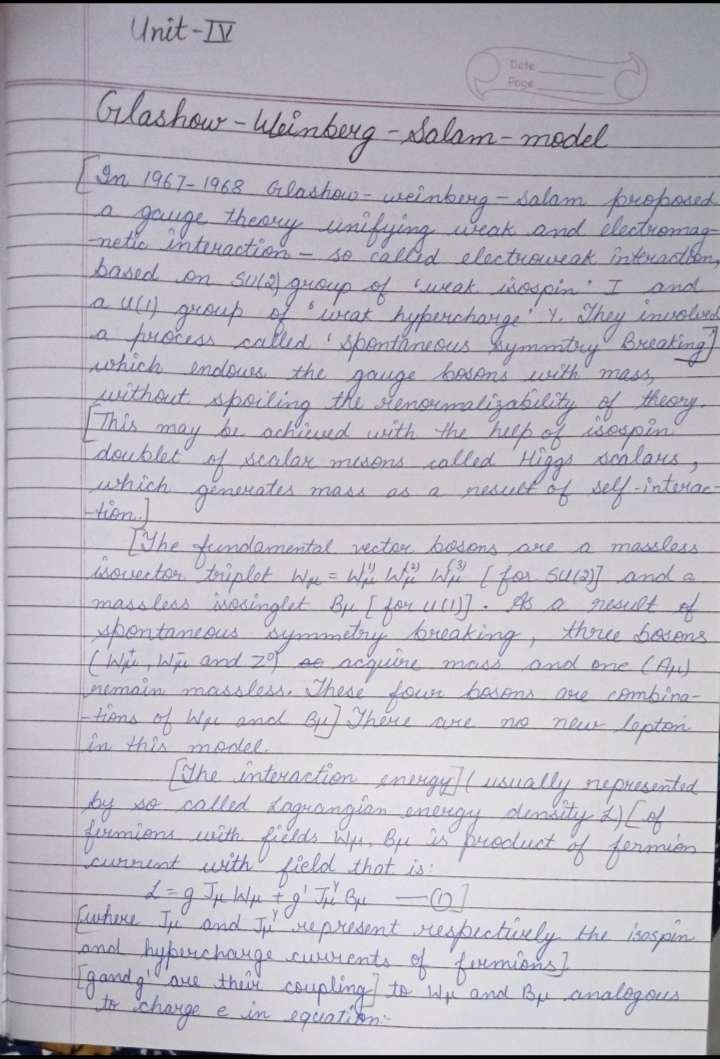 Unit-IV
Date
Page
Glashow-Weinberg-Salam-model
[In 1967-1968 Glashow-weinberg-salam proposed
a gauge theory unifying weak and electromag-
-netic interaction - so called electroweak interaction,
based on SU(2) group of 'weak isospin' I and
a U(1) group of 'weak hypercharge' Y. They involved
a process called 'spontaneous symmtry Breaking]
which endows the gauge bosons with mass,
without spoiling the renormalizability of theory.
[This may be achieved with the help of isospin
doublet of scalar mesons called Higgs scalars,
which generates mass as a result of self-interac-
-tion.]
[The fundamental vector bosons are a massless
isovector triplet Wμ = Wμ⁽¹⁾ Wμ⁽²⁾ Wμ⁽³⁾ [for SU(2)] and a
massless isosinglet Bμ [for U(1)]. As a result of
spontaneous symmetry breaking, three bosons
(Wμ⁺, Wμ⁻ and Z⁰) acquire mass and one (Aμ)
remain massless. These four bosons are combina-
-tions of Wμ and Bμ] There are no new lepton
in this model.
[The interaction energy] (usually represented
by so called Lagrangian energy density L) [of
fermions with fields Wμ, Bμ is product of fermion
current with field that is:
L = g Jμ Wμ + g' Jμʸ Bμ —(1)]
[where Jμ and Jμʸ represent respectively the isospin
and hypercharge currents of fermions]
[g and g' are their coupling] to Wμ and Bμ analogous
to charge e in equation:-